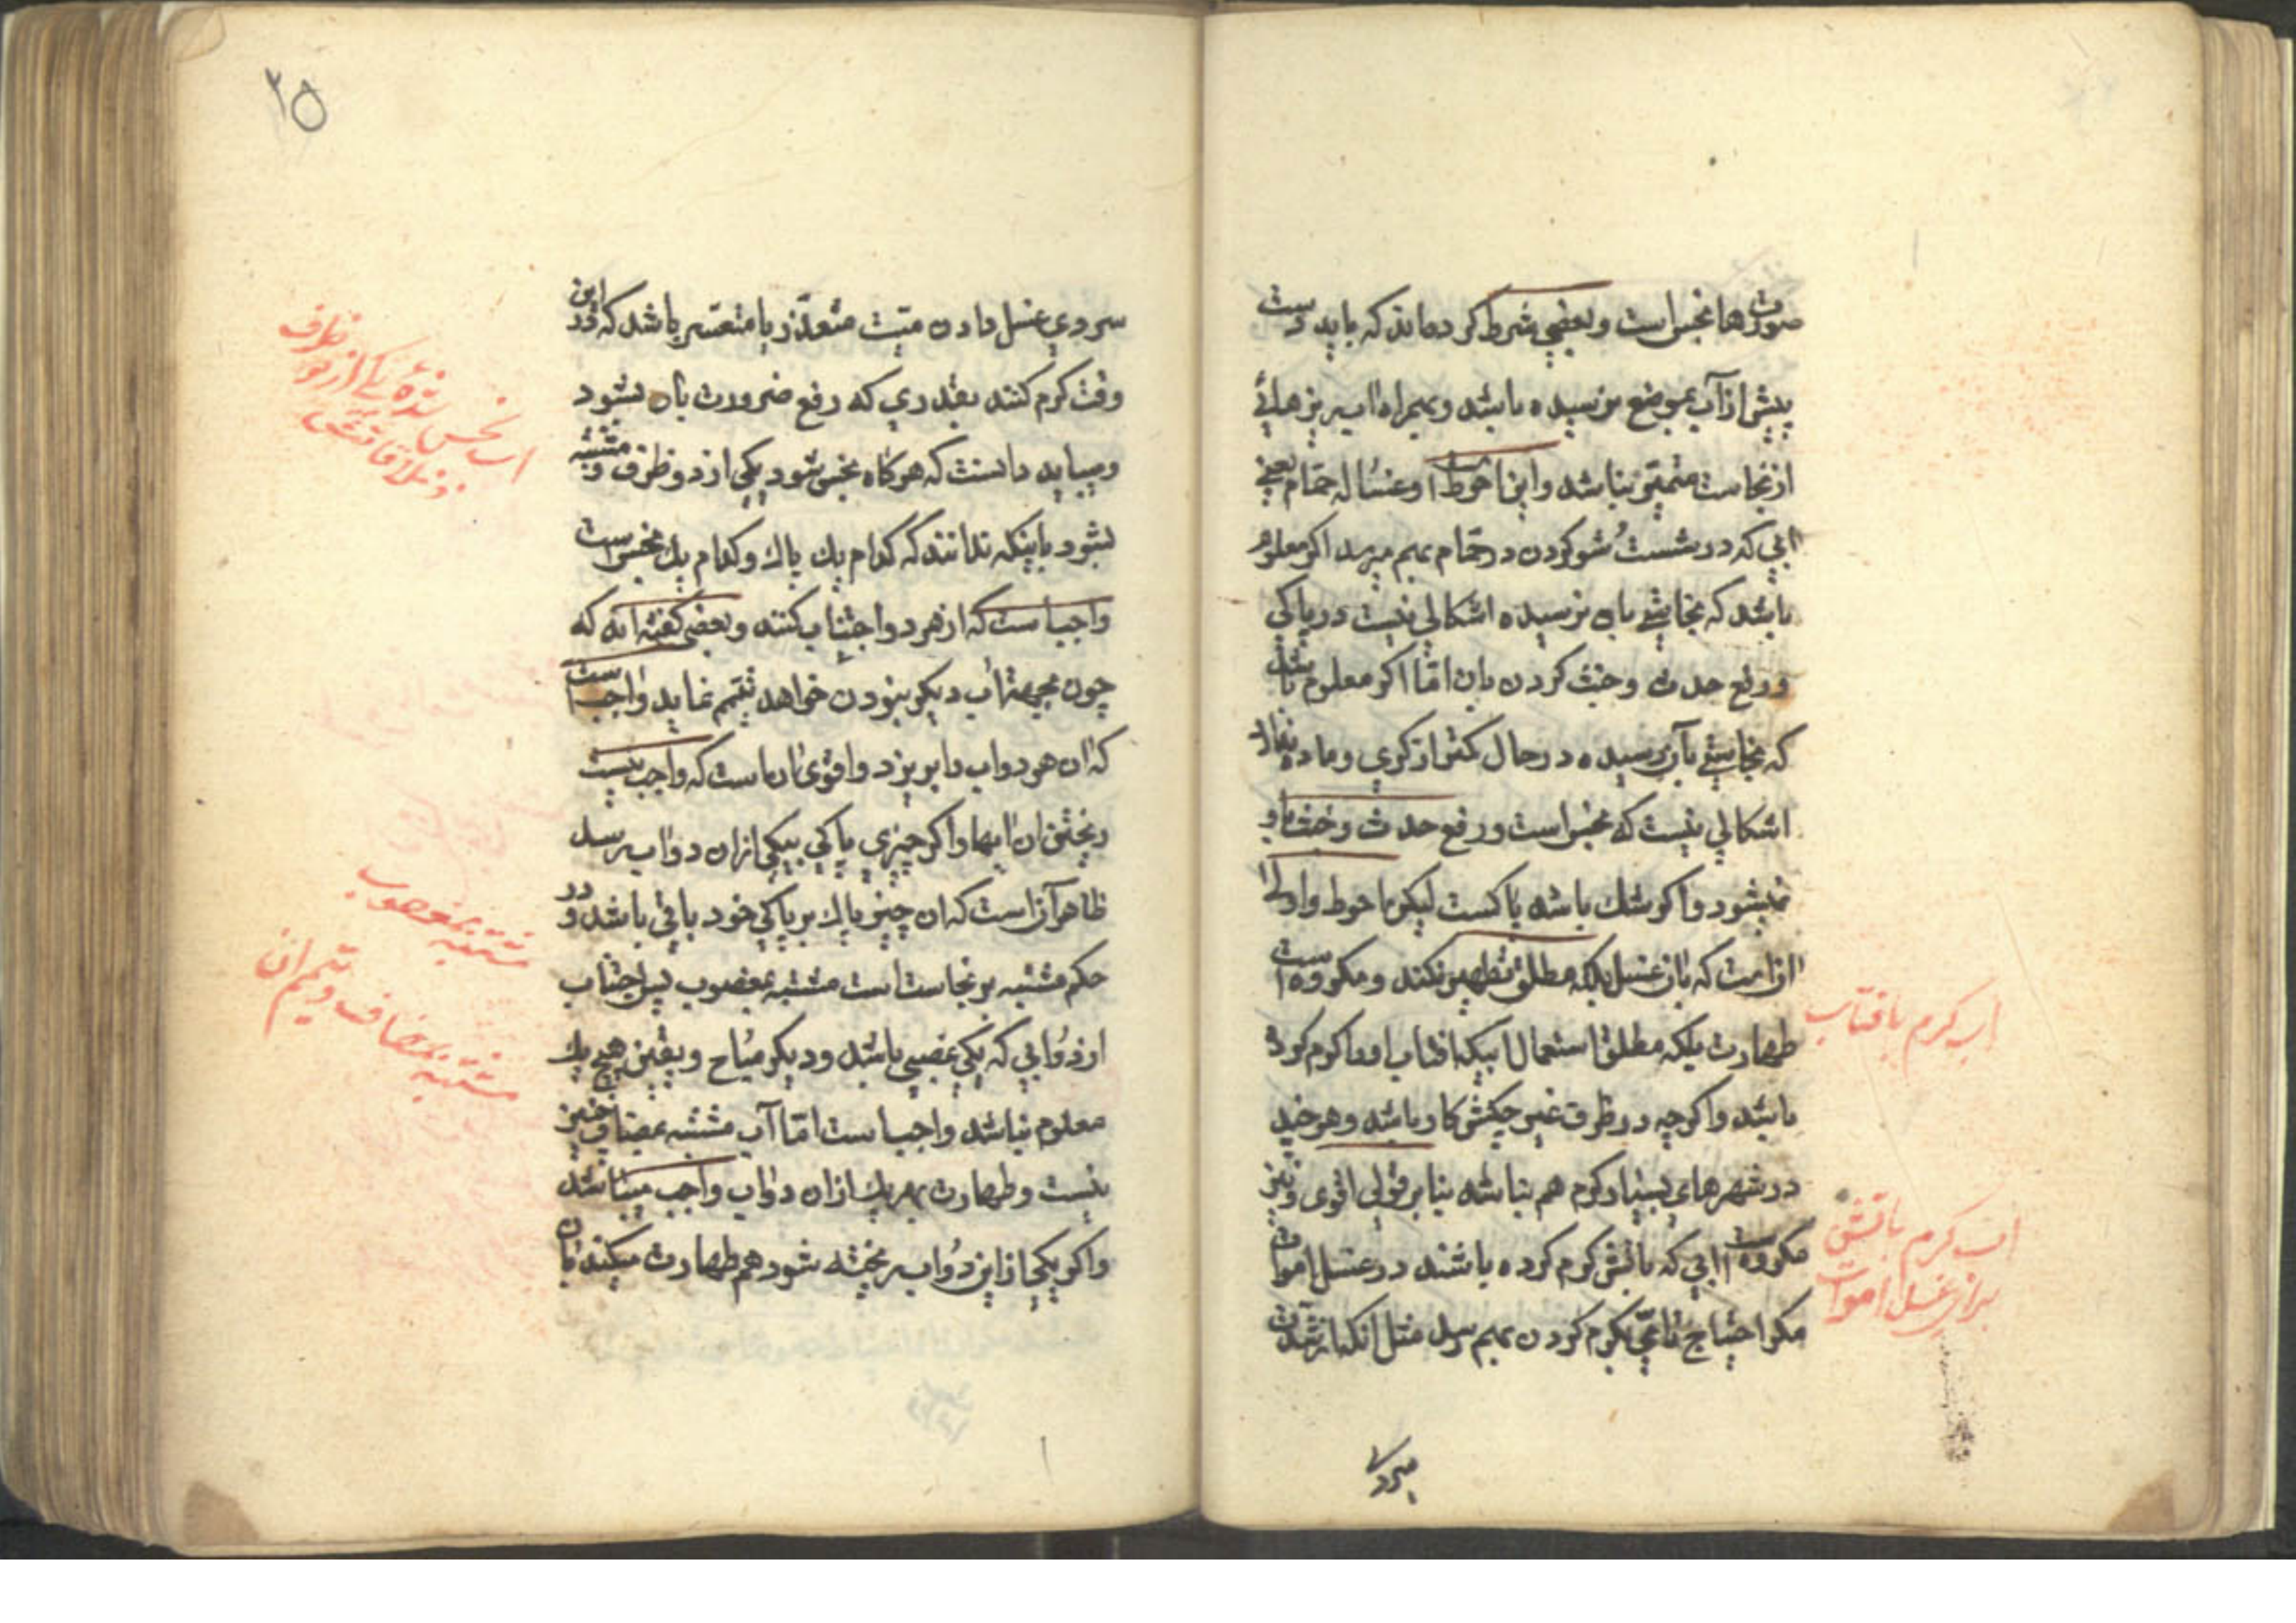 صورتها نجس است و بعضی شرط کرده‌اند که باید دست
پیش از آب بموضع نرسیده باشد و بهمراه آب ریزهایی
از نجاست متمیّز نباشد و این احوط است و غسالهٔ حمّام یعنی
آبی که در شست و شو کردن در حمّام بهم میرسد اگر معلوم
باشد که نجاستی بان نرسیده اشکالی نیست در پاکی
و رفع حدث و خبث کردن بان امّا اگر معلوم باشد
که نجاستی بآن رسیده در حال کمتر از کری و ماده ندارد
اشکالی نیست که نجس است و رفع حدث و خبث باو
نمیشود و اگر شک باشد پاکست لیکن احوط و اولی
آنست که بان غسل بلکه مطلق تطهیر نکنند و مکروه است
طهارت بلکه مطلق استعمال آبیکه افتاب او را گرم کرده
باشد و اگرچه در ظرف غیر چکش کار باشد و هر چند
در شهرهای بسیار گرم هم نباشد بنابر قولی اقوی و نیز
مکروه است آبی که باتش گرم کرده باشند در غسل اموات
مگر احتیاج تامّی بگرم کردن بهم رسد مثل انکه از شدت
سردی
اب گرم بافتاب
اب گرم باتش
برای غسل اموات
۲۵
سردی غسل دادن میّت متعذّر یا متعسّر باشد که در این
وقت گرم کنند بقدری که رفع ضرورت بان بشود
و میباید دانست که هرگاه نجس شود یکی از دو ظرف و مشتبه
بشود باینکه ندانند که کدام یک پاک و کدام یک نجس است
واجب است که از هر دو اجتناب کنند و بعضی گفته‌اند که
چون میخواهد تیمم نماید واجب است
که ان هر دو اب را بریزد و اقوی ان است که واجب نیست
ریختن ان ابها و اگر چیزی پاکی بیکی از ان دو اب برسد
ظاهر آنست که ان چیز پاک بر پاکی خود باقی باشد و در
حکم مشتبه بر نجاست است مشتبه بمغصوب پس اجتناب
از دو ابی که یکی غصبی باشد و دیگر مباح و بیقین هیچ یک
معلوم نباشد واجب است امّا آب مشتبه بمضاف چنین
نیست و طهارت بهر یک از ان دو اب واجب میباشد
و اگر یکی از این دو اب ریخته شود هم طهارت میکند بان
اب نجس شده یکی از دو ظرف
و ملاقاتش
مشتبه بمغصوب
مشتبه بمضاف و تیمم ان